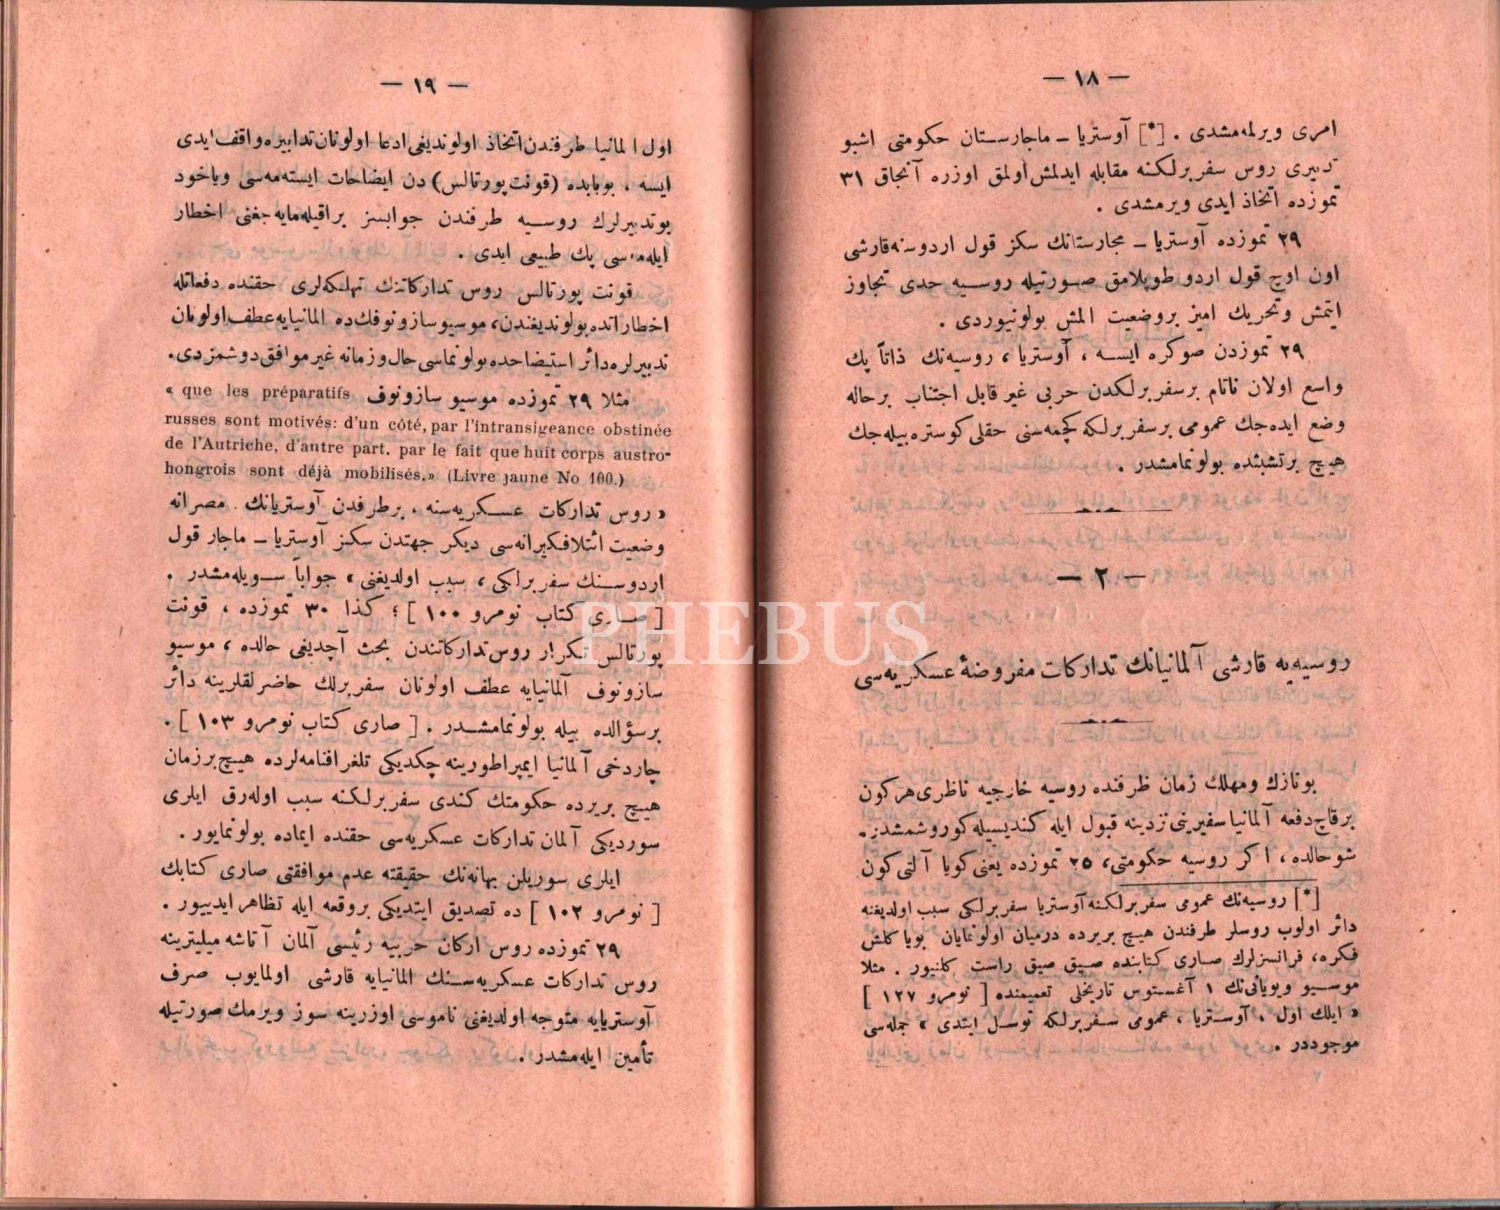 — ١٨ —
امری ویرلمه‌مشدی . [*] آوستریا ــ ماجارستان حکومتی اشبو
تدبیری روس سفربرلکنه مقابله ایدلمش اولمق اوزره آنجاق ٣١
تموزده اتخاذ ایدی ویرمشدی .
٢٩ تموزده آوستریا ــ مجارستانك سکز قول اردوسنه قارشی
اون اوچ قول اردو طوپلامق صورتیله روسیه حدی تجاوز
ایتمش وتحریك امیز بروضعیت المش بولونیوردی .
٢٩ تموزدن صوکره ایسه ، آوستریا ، روسیه‌نك ذاتاً پك
واسع اولان ناتام برسفربرلکدن حربی غیر قابل اجتناب برحاله
وضع ایده‌جك عمومی برسفربرلکه کچمه‌سنی حقلی کوستره بیله‌جك
هیچ برتشبثده بولونمامشدر .
— ٢ —
روسیه‌یه قارشی آلمانیانك تدارکات مفروضهٔ عسکریه‌سی
بونازك ومهلك زمان ظرفنده روسیه خارجیه ناظری هرکون
برقاچ دفعه آلمانیا سفیرینی نزدینه قبول ایله کندیسیله کوروشمشدر.
شوحالده ، اکر روسیه حکومتی، ٢٥ تموزده یعنی کویا آلتی کون
[*] روسیه‌نك عمومی سفربرلکنه آوستریا سفربرلکی سبب اولدیغنه
دائر اولوب روسلر طرفندن هیچ بریرده درمیان اولونمایان بویاکلش
فکره، فرانسزلرك صاری کتابنده صیق صیق راست کلنیور . مثلا
موسیو ویویانی‌نك ١ آغستوس تاریخلی تعمیمنده [ نومرو ١٢٧ ]
« ایلك اول ، آوستریا ، عمومی سفربرلکه توسل ایتدی » جمله‌سی
موجوددر .
— ١٩ —
اول المانیا طرفندن اتخاذ اولوندیغی ادعا اولونان تدابیره واقف ایدی
ایسه ، بوبابده (قونت پورتالس) دن ایضاحات ایسته‌مه‌سی ویاخود
بوتدبیرلرك روسیه طرفندن جوابسز براقیله‌مایه‌جغنی اخطار
ایله‌مه‌سی پك طبیعی ایدی .
قونت پورتالس روس تدارکاتنك تهلکه‌لری حقنده دفعاتله
اخطاراتده بولوندیغندن، موسیو سازونوفك‌ده المانیایه عطف اولونان
تدبیرلره دائر استیضاحده بولونماسی حال وزمانه غیر موافق دوشمزدی.
مثلا ٢٩ تموزده موسیو سازونوف « que les préparatifs
russes sont motivés: d'un côté, par l'intransigeance obstinée
de l'Autriche, d'antre part, par le fait que huit corps austro-
hongrois sont déjà mobilisés.» (Livre jaune No 100.)
« روس تدارکات عسکریه‌سنه ، برطرفدن آوستریانك مصرانه
وضعیت ائتلافکیرانه‌سی دیکر جهتدن سکز آوستریا ــ ماجار قول
اردوسنك سفربرلکی ، سبب اولدیغنی » جواباً سویله‌مشدر .
[ صاری کتاب نومرو ١٠٠ ] ؛ کذا ٣٠ تموزده ، قونت
پورتالس تکرار روس تدارکاتندن بحث آچدیغی حالده ، موسیو
سازونوف آلمانیایه عطف اولونان سفربرلك حاضرلقلرینه دائر
برسؤالده بیله بولونمامشدر . [ صاری کتاب نومرو ١٠٣ ] .
چاردخی آلمانیا ایمپراطورینه چکدیکی تلغرافنامه‌لرده هیچ برزمان
هیچ بریرده حکومتك کندی سفربرلکنه سبب اوله‌رق ایلری
سوردیکی آلمان تدارکات عسکریه‌سی حقنده ایماده بولونمایور .
ایلری سوریلن بهانه‌نك حقیقته عدم موافقتی صاری کتابك
[ نومرو ١٠٢ ] ده تصدیق ایتدیکی بروقعه ایله تظاهر ایدییور .
٢٩ تموزده روس ارکان حربیه رئیسی آلمان آتاشه میلیترینه
روس تدارکات عسکریه‌سنك المانیایه قارشی اولمایوب صرف
آوستریایه متوجه اولدیغنی ناموسی اوزرینه سوز ویرمك صورتیله
تأمین ایله‌مشدر .
PHEBUS